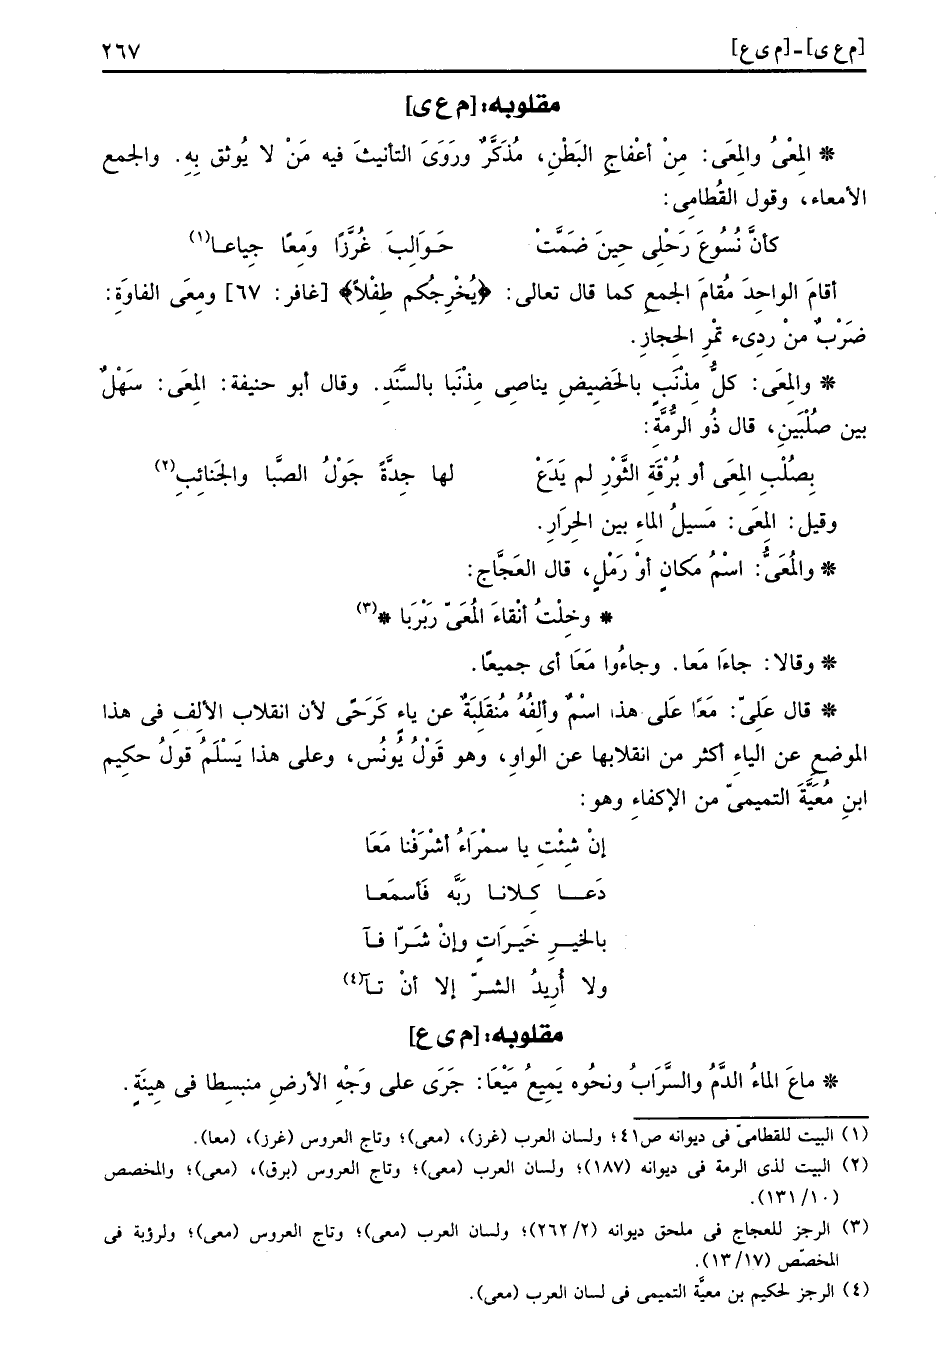 [م ع ى] - [م ى ع] ٢٦٧
مقلوبه: [م ع ى]
* المِعْىُ والمِعَى: مِنْ أعْفاجِ البَطْنِ، مُذكَّرٌ ورَوَىَ التأنيثَ فيه مَنْ لا يُوثق بِهِ. والجمع
الأمعاء، وقول القُطامى:
كأنَّ نُسُوعَ رَحْلِى حينَ ضَمَّتْ حَوَالِبَ غُرَّزًا ومَعًا جياعا(١)
أقامَ الواحِدَ مُقامَ الجمع كما قال تعالى: ﴿يُخْرِجُكم طفْلاً﴾ [غافر: ٦٧] ومعَى الفاوَة:
ضَرْبٌ منْ ردِىء تمْرِ الحِجازِ.
* والمِعَى: كلُّ مِذْنَبٍ بالحَضِيضِ يناصى مِذْنَبا بالسَّنَدِ. وقال أبو حنيفة: المِعَى: سَهْلٌ
بين صلُبَينِ، قال ذُو الرمَّة:
بِصُلْبِ المِعَى أو بُرْقَةِ الثَّوْرِ لم يَدَعْ لها جِدَّةً جَوْلُ الصبَّا والجَنائِبِ(٢)
وقيل: المِعَى: مَسيلُ الماءِ بين الحِرَارِ.
* والمُعَىُّ: اسْمُ مَكانٍ أوْ رَمْلٍ، قال العَجَّاج:
* وخِلْتُ أنْقاءَ المُعَىّ رَبْرَبا *(٣)
* وقالا: جاءَا مَعا. وجاءُوا مَعَا أى جميعًا.
* قال عَلِىّ: مَعًا عَلَى هذا اسْمٌ وألفُهُ مُنقَلِبَةٌ عن ياءٍ كَرَحًى لأن انقلاب الألفِ فى هذا
الموضعِ عن الياءِ أكثر من انقلابها عن الواوِ، وهو قَوْلُ يُونُس، وعلى هذا يَسْلَمُ قولُ حكيم
ابنِ مُعَيَّةَ التميمىّ من الإكفاءِ وهو:
إنْ شِئْتِ يا سمْرَاءُ أشْرَفْنا مَعَا
دَعـا كِلانا رَبَّه فَأسمَعا
بالخيرِ خَيرَاتٍ وإنْ شَرّا فآ
ولا أُرِيدُ الشرّ إلا أنْ تـآ(٤)
مقلوبه: [م ى ع]
* ماعَ الماءُ الدَّمُ والسَّرَابُ ونحُوه يَمِيعُ مَيْعَا: جَرَى على وَجْهِ الأرضِ منبسطا فى هِينَةٍ.
(١) البيت للقطامىّ فى ديوانه ص٤١؛ ولسان العرب (غرز)، (معى)؛ وتاج العروس (غرز)، (معا).
(٢) البيت لذى الرمة فى ديوانه (١٨٧)؛ ولسان العرب (معى)؛ وتاج العروس (برق)، (معى)؛ والمخصص
(١٠/ ١٣١).
(٣) الرجز للعجاج فى ملحق ديوانه (٢/ ٢٦٢)؛ ولسان العرب (معى)؛ وتاج العروس (معى)؛ ولرؤبة فى
المخصّص (١٧/ ١٣).
(٤) الرجز لحكيم بن معيَّة التميمى فى لسان العرب (معى).